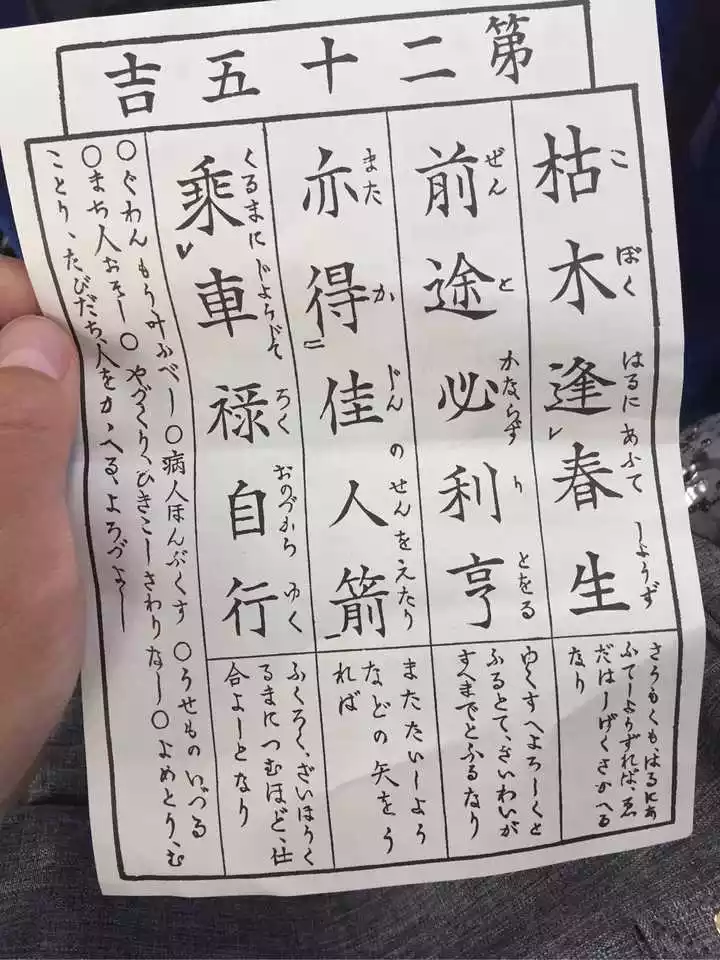 第二十五吉
枯木逢春生
こ ぼく はるに あふて しようず
さうもくも、はるにあ
ふてしようずれば、ゑ
だはしげくさかへる
なり
前途必利亨
ぜん と かならず り とをる
ゆくすへよろしくと
ふるとて、さいわいが
すへまでとふるなり
亦得佳人箭
また か じん の せんをえたり
またたいしよう
などの矢をう
れば
乗車禄自行
くるまに じようじて ろく おのづから ゆく
ふくろく、ざいほうく
るまにつむほど、仕
合よしとなり
〇ぐわん もう叶ふべし〇病人ほんぶくす 〇うせもの いづる
〇まち人おそし〇やづくり、ひきこしさわりなし〇よめとり、む
ことり、たびだち、人をかゝへる、よろづよし